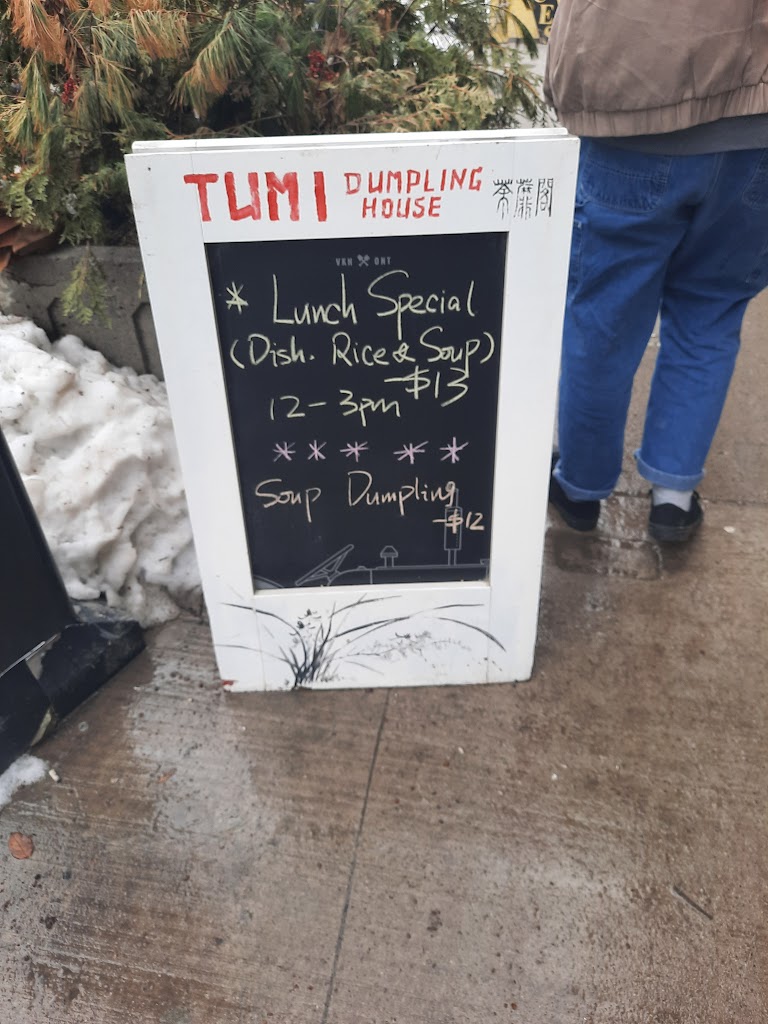 TUMI DUMPLING HOUSE
VKH ONT
* Lunch Special
(Dish. Rice & Soup)
-$13
12-3pm
* * * * *
Soup Dumpling
-$12